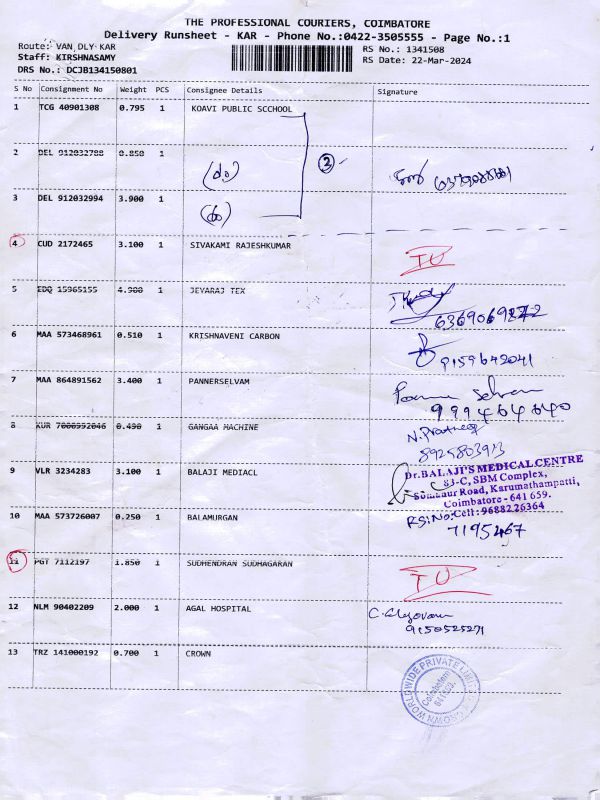 THE PROFESSIONAL COURIERS, COIMBATORE
Delivery Runsheet - KAR - Phone No.:0422-3505555 - Page No.:1
Route: VAN DLY KAR
RS No.: 1341508
Staff: KIRSHNASAMY
RS Date: 22-Mar-2024
DRS No.: DCJB134150801
S No Consignment No Weight PCS Consignee Details Signature
1 TCG 40901308 0.795 1 KOAVI PUBLIC SCCHOOL
2 DEL 912032788 0.850 1 (do) 2
3 DEL 912032994 3.900 1 (do)
4 CUD 2172465 3.100 1 SIVAKAMI RAJESHKUMAR TU
5 EDQ 15965155 4.900 1 JEYARAJ TEX
6369069272
6 MAA 573468961 0.510 1 KRISHNAVENI CARBON
9159642041
7 MAA 864891562 3.400 1 PANNERSELVAM
999464640
8 KUR 7000992046 0.490 1 GANGAA MACHINE
8925803913
9 VLR 3234283 3.100 1 BALAJI MEDIACL
Dr.BALAJI'S MEDICAL CENTRE
83-C, SBM Complex,
Somanur Road, Karumathampatti,
Coimbatore - 641 659.
Cell: 9688226364
10 MAA 573726007 0.250 1 BALAMURGAN
RS:No:
7195467
11 PGT 7112197 1.850 1 SUDHENDRAN SUDHAGARAN TU
12 NLM 90402209 2.000 1 AGAL HOSPITAL
9150525271
13 TRZ 141000192 0.700 1 CROWN